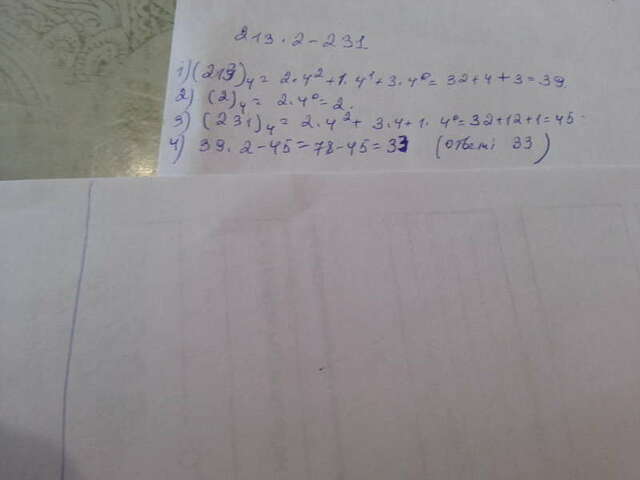 213 · 2 - 231
1) (213)₄ = 2·4² + 1·4¹ + 3·4⁰ = 32 + 4 + 3 = 39.
2) (2)₄ = 2·4⁰ = 2.
3) (231)₄ = 2·4² + 3·4 + 1·4⁰ = 32 + 12 + 1 = 45
4) 39 · 2 - 45 = 78 - 45 = 33 (Ответ: 33)